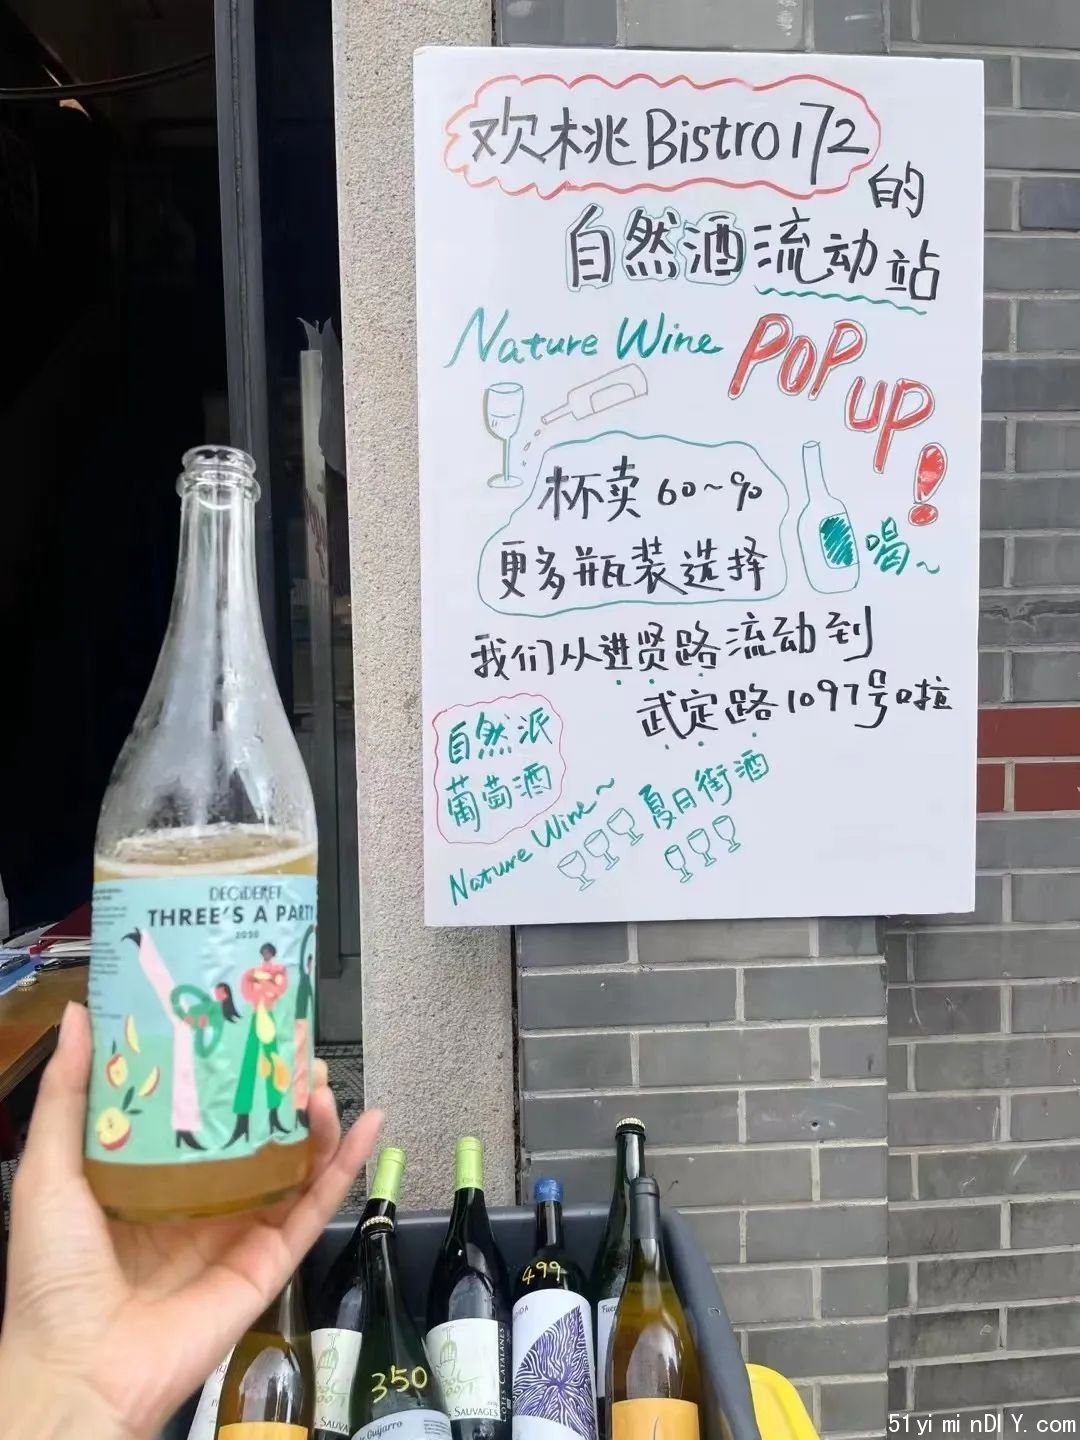 欢桃Bistro172
的
自然酒流动站
Nature Wine
POP
UP!
杯卖 60~90
更多瓶装选择
喝~
我们从进贤路流动到
武定路1097号啦
自然派
葡萄酒
Nature Wine~
夏日街酒
DECiDERET
THREE'S A PARTY
2020
499
350
SAUVAGES
Guijarro
51yiminDIY.com